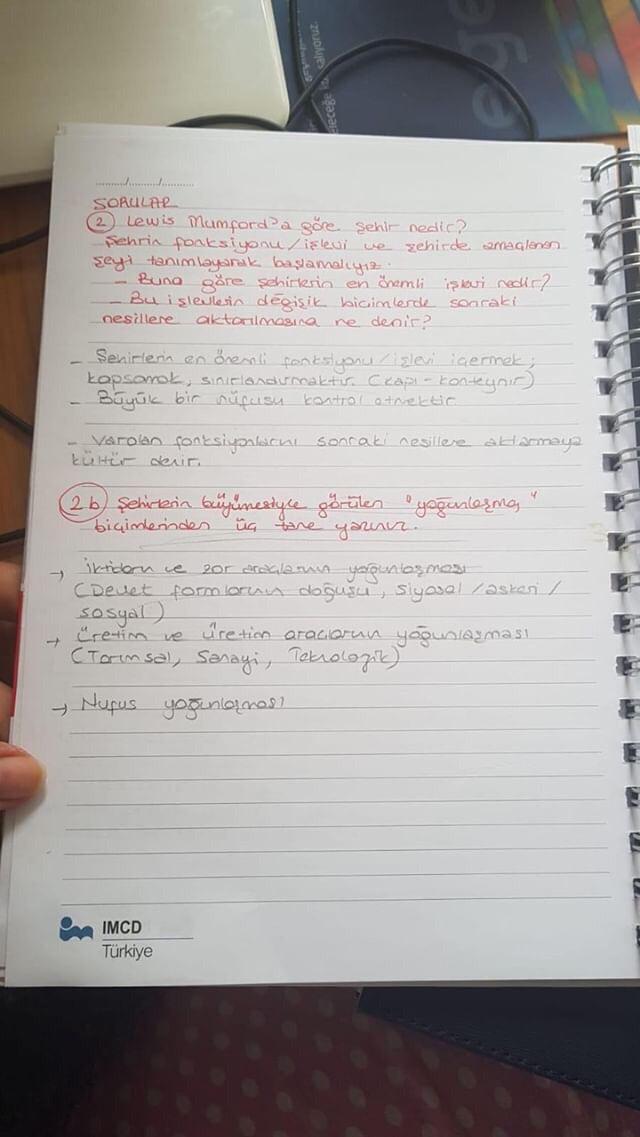 geleceğe
çalışıyoruz.
ege
...../...../.....
SORULAR
2 Lewis Mumford'a göre şehir nedir?
Şehrin fonksiyonu/işlevi ve şehirde amaçlanan
şeyi tanımlayarak başlamalıyız.
- Buna göre şehirlerin en önemli işlevi nedir?
- Bu işlevlerin değişik biçimlerde sonraki
nesillere aktarılmasına ne denir?
- Şehirlerin en önemli fonksiyonu/işlevi içermek,
kapsamak, sınırlandırmaktır. (kapı-konteynır)
- Büyük bir nüfusu kontrol etmektir
- Varolan fonksiyonlarını sonraki nesillere aktarmaya
kültür denir.
2b Şehirlerin büyümesiyle görülen "yoğunlaşma"
biçimlerinden üç tane yazınız.
→ İktidarın ve zor araçlarının yoğunlaşması
(Devlet formlarının doğuşu, siyasal/askeri/
sosyal)
→ Üretim ve üretim araçlarının yoğunlaşması
(Tarımsal, Sanayi, Teknolojik)
→ Nufus yoğunlaşması
IMCD
Türkiye